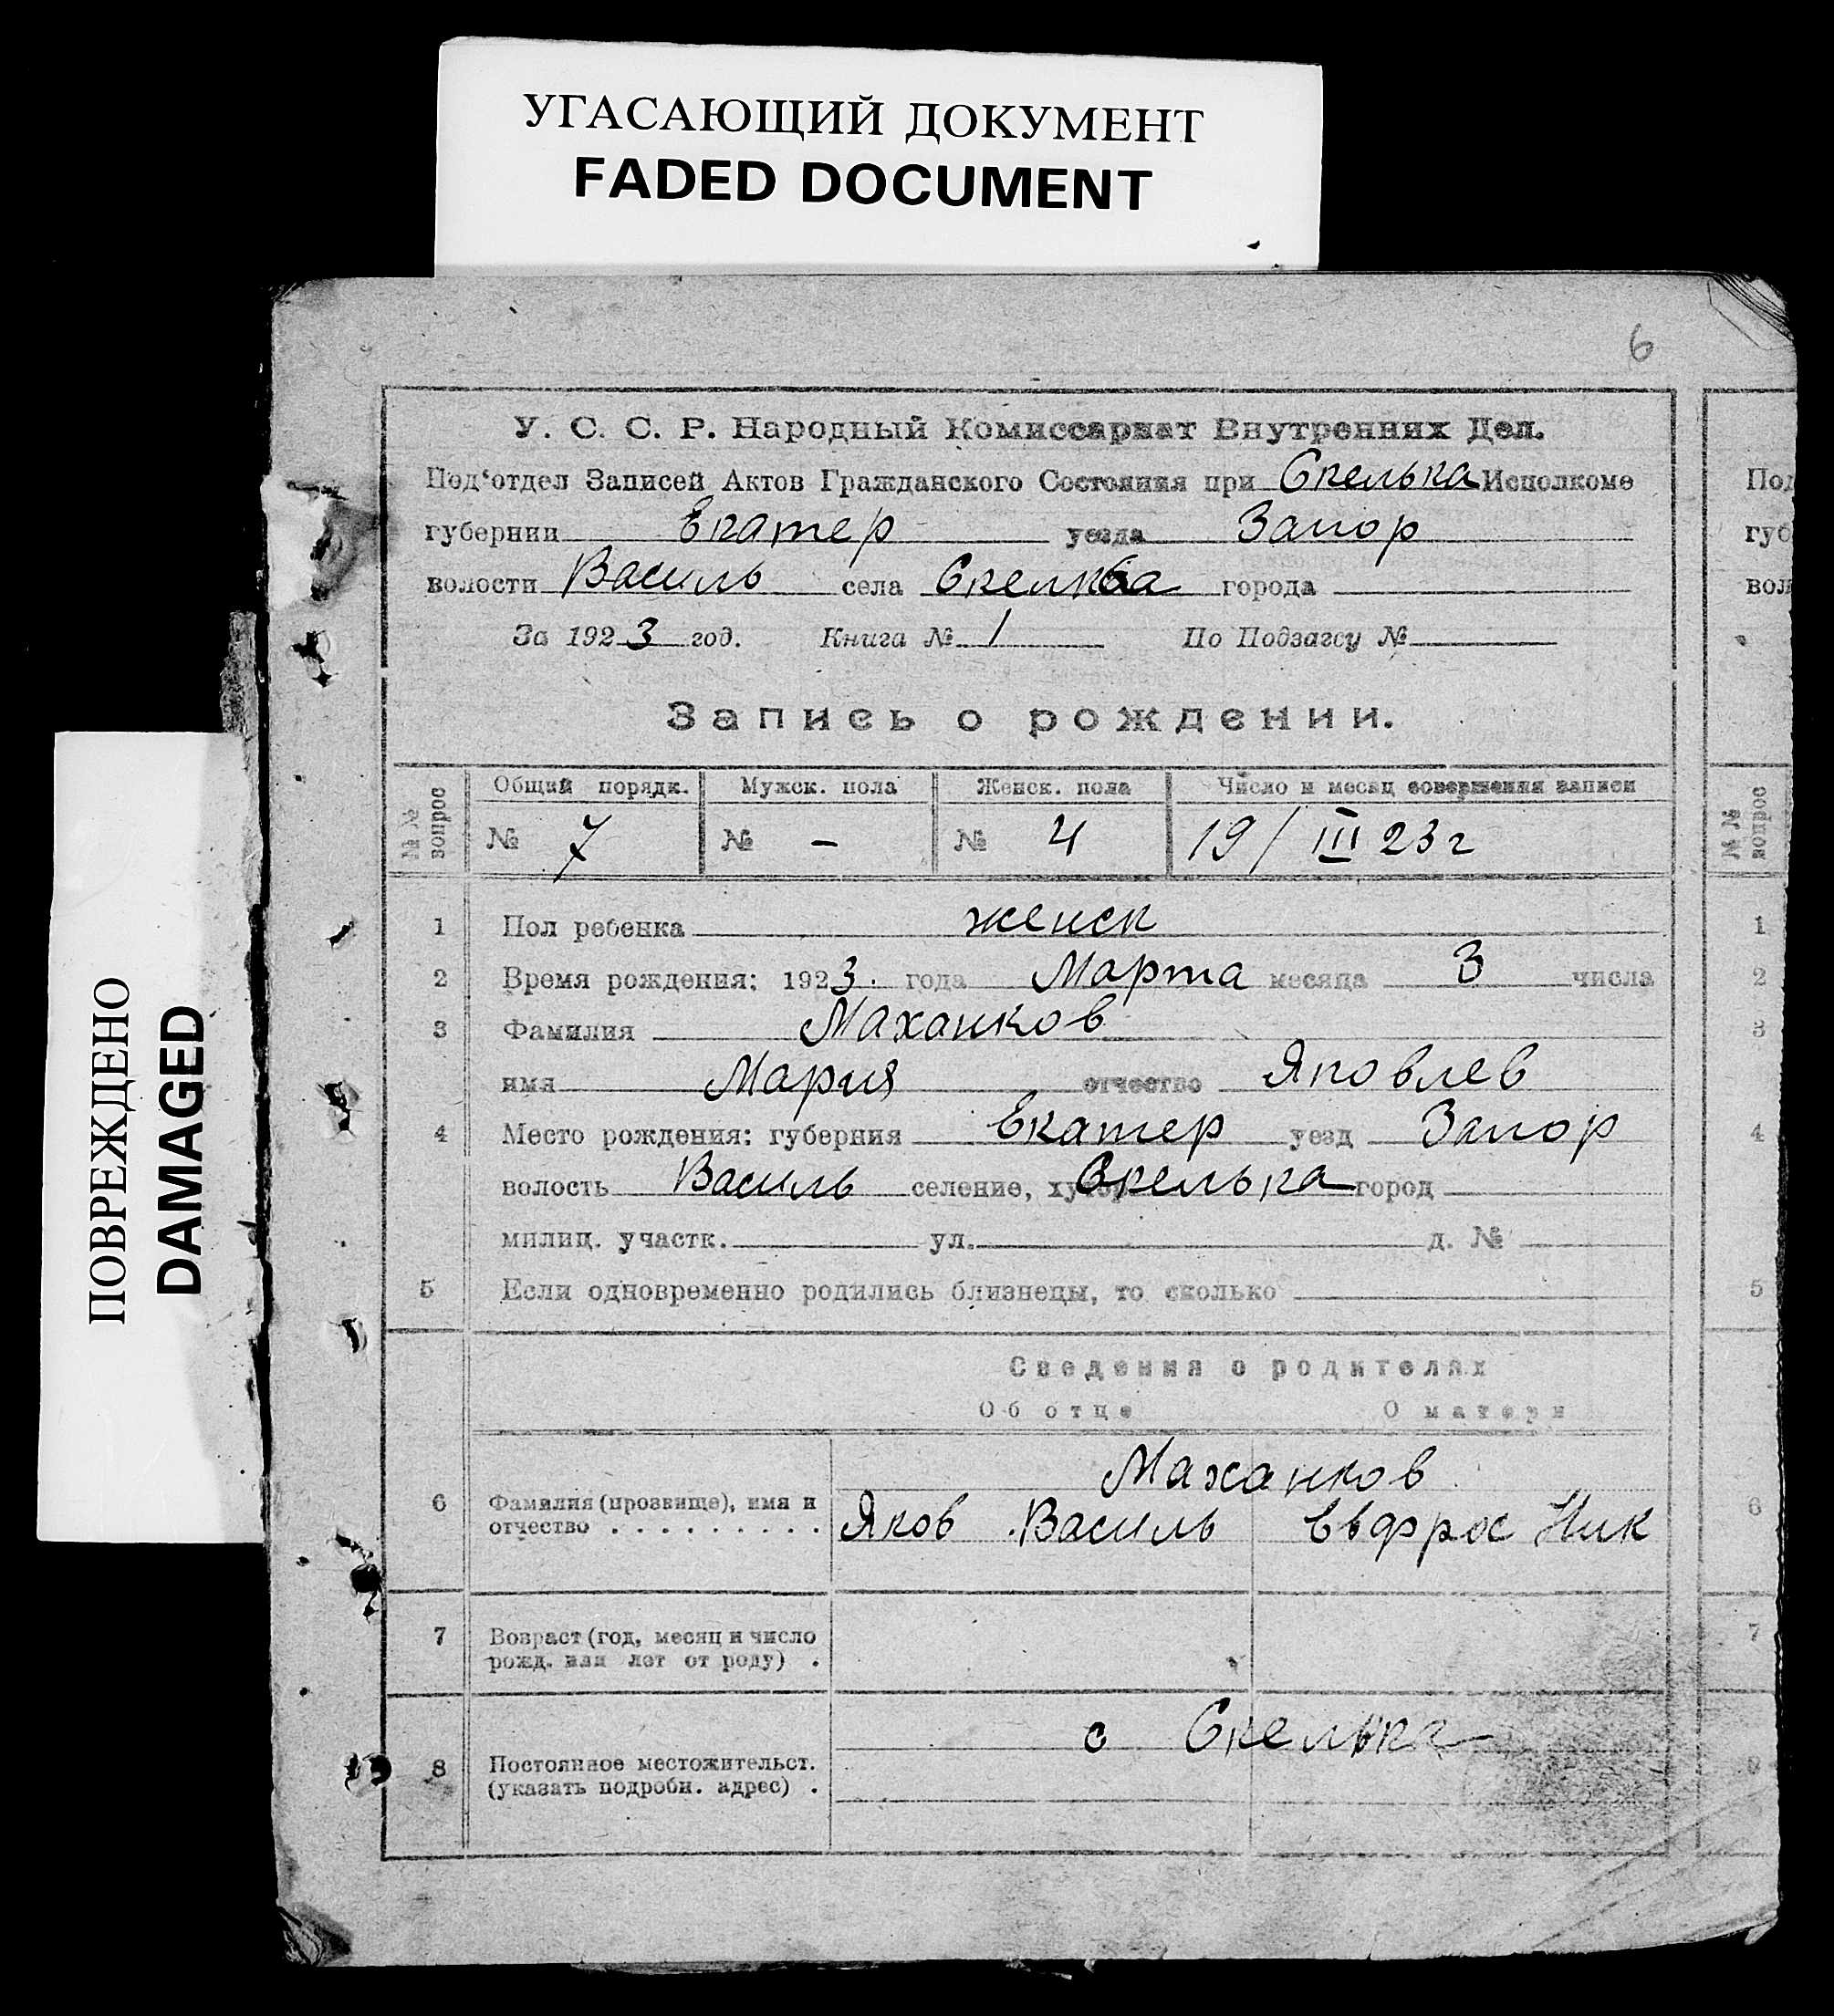 УГАСАЮЩИЙ ДОКУМЕНТ
FADED DOCUMENT
ПОВРЕЖДЕНО
DAMAGED
6
У. С. С. Р. Народный Комиссариат Внутренних Дел.
Под'отдел Записей Актов Гражданского Состояния при Скелька Исполкоме
губернии Екатер уезда Запор
волости Василь села Скелька города
За 1923 год. Книга № 1 По Подзагсу №
Запись о рождении.
№ № вопрос Общий порядк. Мужск. пола Женск. пола Число и месяц совершения записи
№ 7 № – № 4 19/III 23 г
1 Пол ребенка женск
2 Время рождения: 1923. года Марта месяца 3 числа
3 Фамилия Маханков
имя Мария отчество Яковлев
4 Место рождения: губерния Екатер уезд Запор
волость Василь селение, Скелька город
милиц. участк. ул. д. №
5 Если одновременно родились близнецы, то сколько
Сведения о родителях
Об отце О матери
Маханков
6 Фамилия (прозвище), имя и
отчество . . . . . . . . . Яков Василь Евфрос Ник
7 Возраст (год, месяц и число
рожд. или лет от роду) .
с Скелька
8 Постоянное местожительст.
(указать подробн. адрес) .
Под
губ
вол
№ № вопрос
1
2
3
4
5
6
7